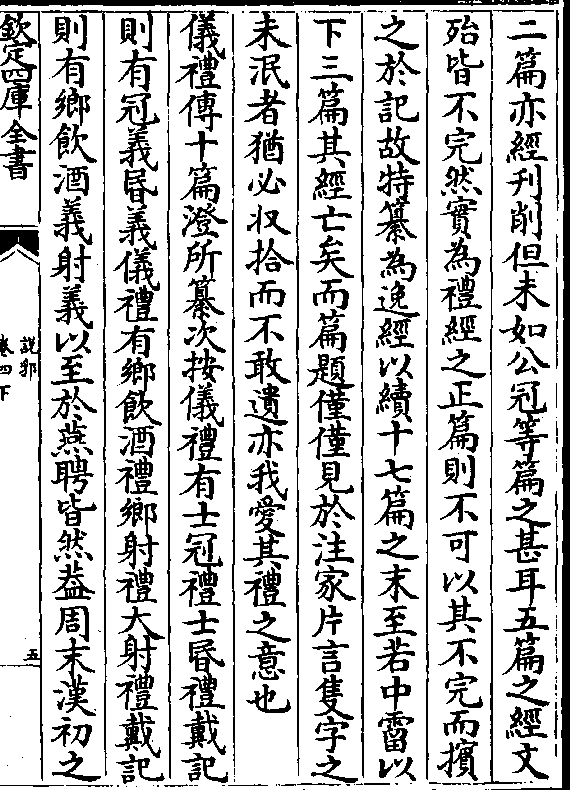 二篇亦經刋削但未如公冠等篇之甚耳五篇之經文
殆皆不完然實為禮經之正篇則不可以其不完而擯
之於記故特纂為逸經以續十七篇之末至若中霤以
下三篇其經亡矣而篇題僅僅見於注家片言隻字之
未泯者猶必収拾而不敢遺亦我愛其禮之意也
儀禮傳十篇澄所纂次按儀禮有士冠禮士昏禮戴記
則有冠義昏義儀禮有鄉飲酒禮鄉射禮大射禮戴記
則有鄉飲酒義射義以至於燕聘皆然葢周末漢初之
欽定四庫全書
說郛
卷四下
五